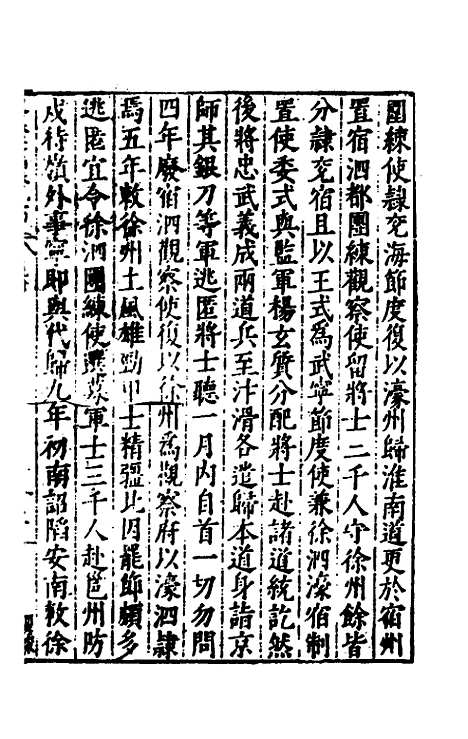 團練使隷兗海節度復以濠州歸淮南道更於宿州
置宿泗都團練觀察使留將士二千人守徐州餘皆
分隷兗宿且以王式為武寧節度使兼徐泗濠宿制
置使委式與監軍楊玄質分配將士赴諸道統訖然
後將忠武義成兩道兵至汴滑各遣歸本道身詣京
師其銀刀等軍逃匿將士聽一月內自首一切勿問
四年廢宿泗觀察使復以徐州為觀察府以濠泗隷
焉五年敕徐州土風雄勁甲士精彊比因罷節頗多
逃匿宜令徐泗團練使選募軍士三千人赴邕州防
戍待嶺外事寧即與代歸九年初南詔陷安南敕徐